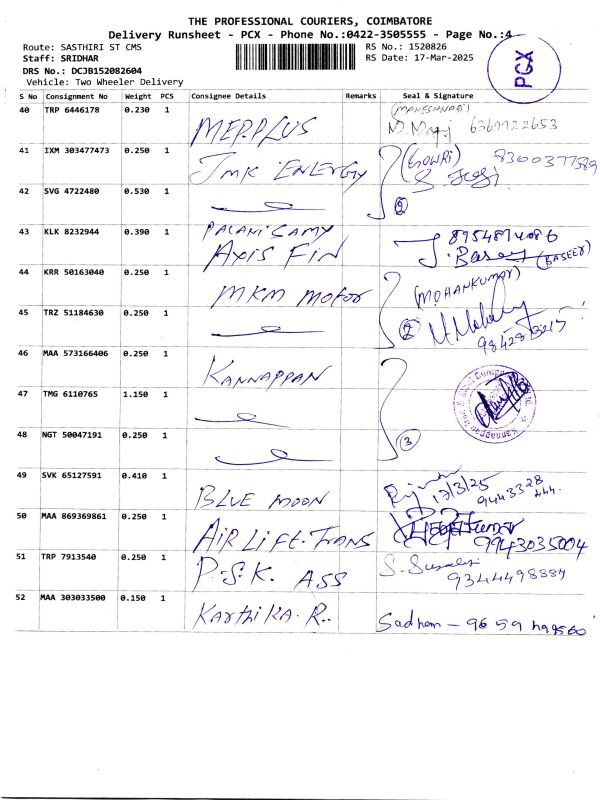 THE PROFESSIONAL COURIERS, COIMBATORE
Delivery Runsheet - PCX - Phone No.:0422-3505555 - Page No.:4
Route: SASTHIRI ST CMS RS No.: 1520826
Staff: SRIDHAR RS Date: 17-Mar-2025
DRS No.: DCJB152082604
Vehicle: Two Wheeler Delivery
PCX
S No Consignment No Weight PCS Consignee Details Remarks Seal & Signature
40 TRP 6446178 0.230 1 MERPLUS (MAHESHWARI) 6369722653
41 IXM 303477473 0.250 1 JMK ENERGY (GOWRI) 8300377589
42 SVG 4722480 0.530 1 2
43 KLK 8232944 0.390 1 PALANISAMY AXIS FIN 8954874086 J. Baseer (BASEER)
44 KRR 50163040 0.250 1 MKM MOTOR (MOHANKUMAR)
45 TRZ 51184630 0.250 1 2
46 MAA 573166406 0.250 1 KANNAPPAN
47 TMG 6110765 1.150 1
48 NGT 50047191 0.250 1 3
49 SVK 65127591 0.410 1 BLUE MOON 17/3/25 9443328 444.
50 MAA 869369861 0.250 1 AIR LIFT-TRANS 9943035004
51 TRP 7913540 0.250 1 P.S.K. ASS 9344498884
52 MAA 303033500 0.150 1 KARTHIKA.R.. Sadham - 9659